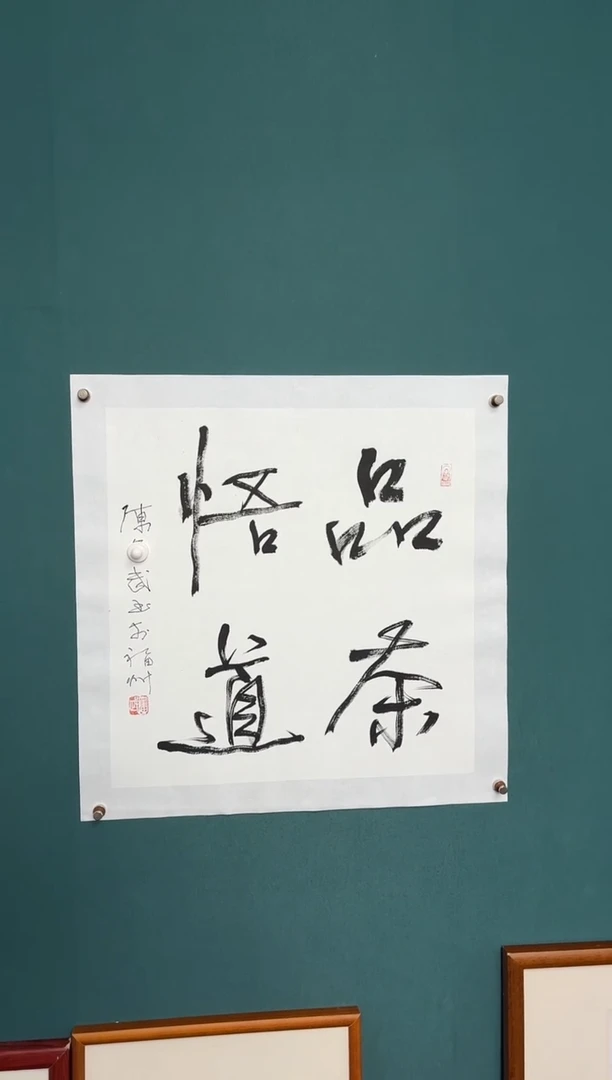 品茶
悟道
陳武书於福州